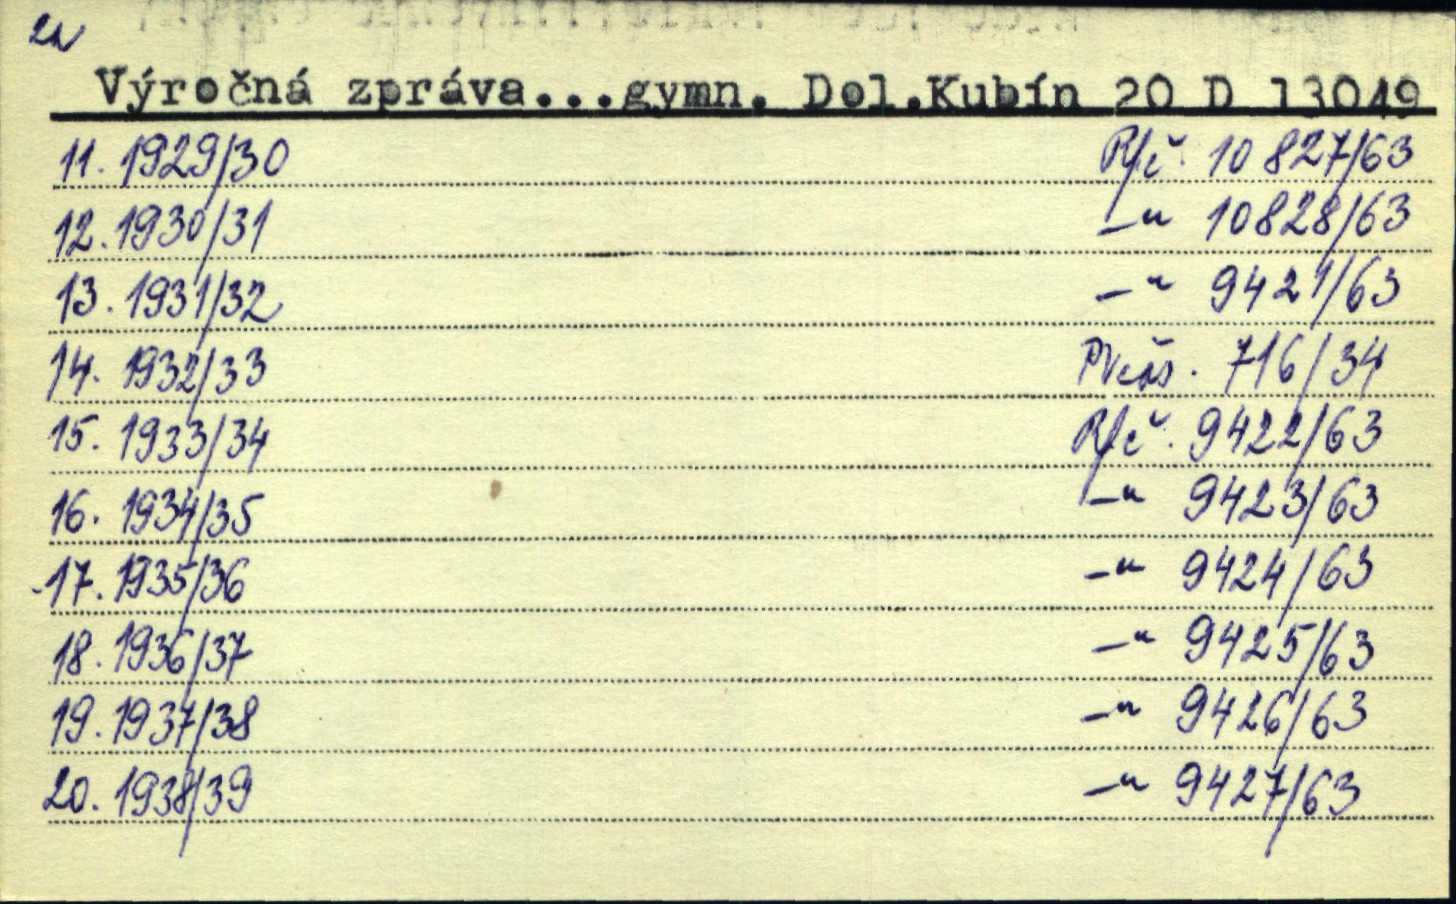 Výročná zpráva...gymn. Dol.Kubín 20 D 13049
11. 1929/30 R/č. 10 827/63
12. 1930/31 —" 10828/63
13. 1931/32 —" 9421/63
14. 1932/33 716/34
15. 1933/34 R/č. 9422/63
16. 1934/35 —" 9423/63
17. 1935/36 —" 9424/63
18. 1936/37 —" 9425/63
19. 1937/38 —" 9426/63
20. 1938/39 —" 9427/63